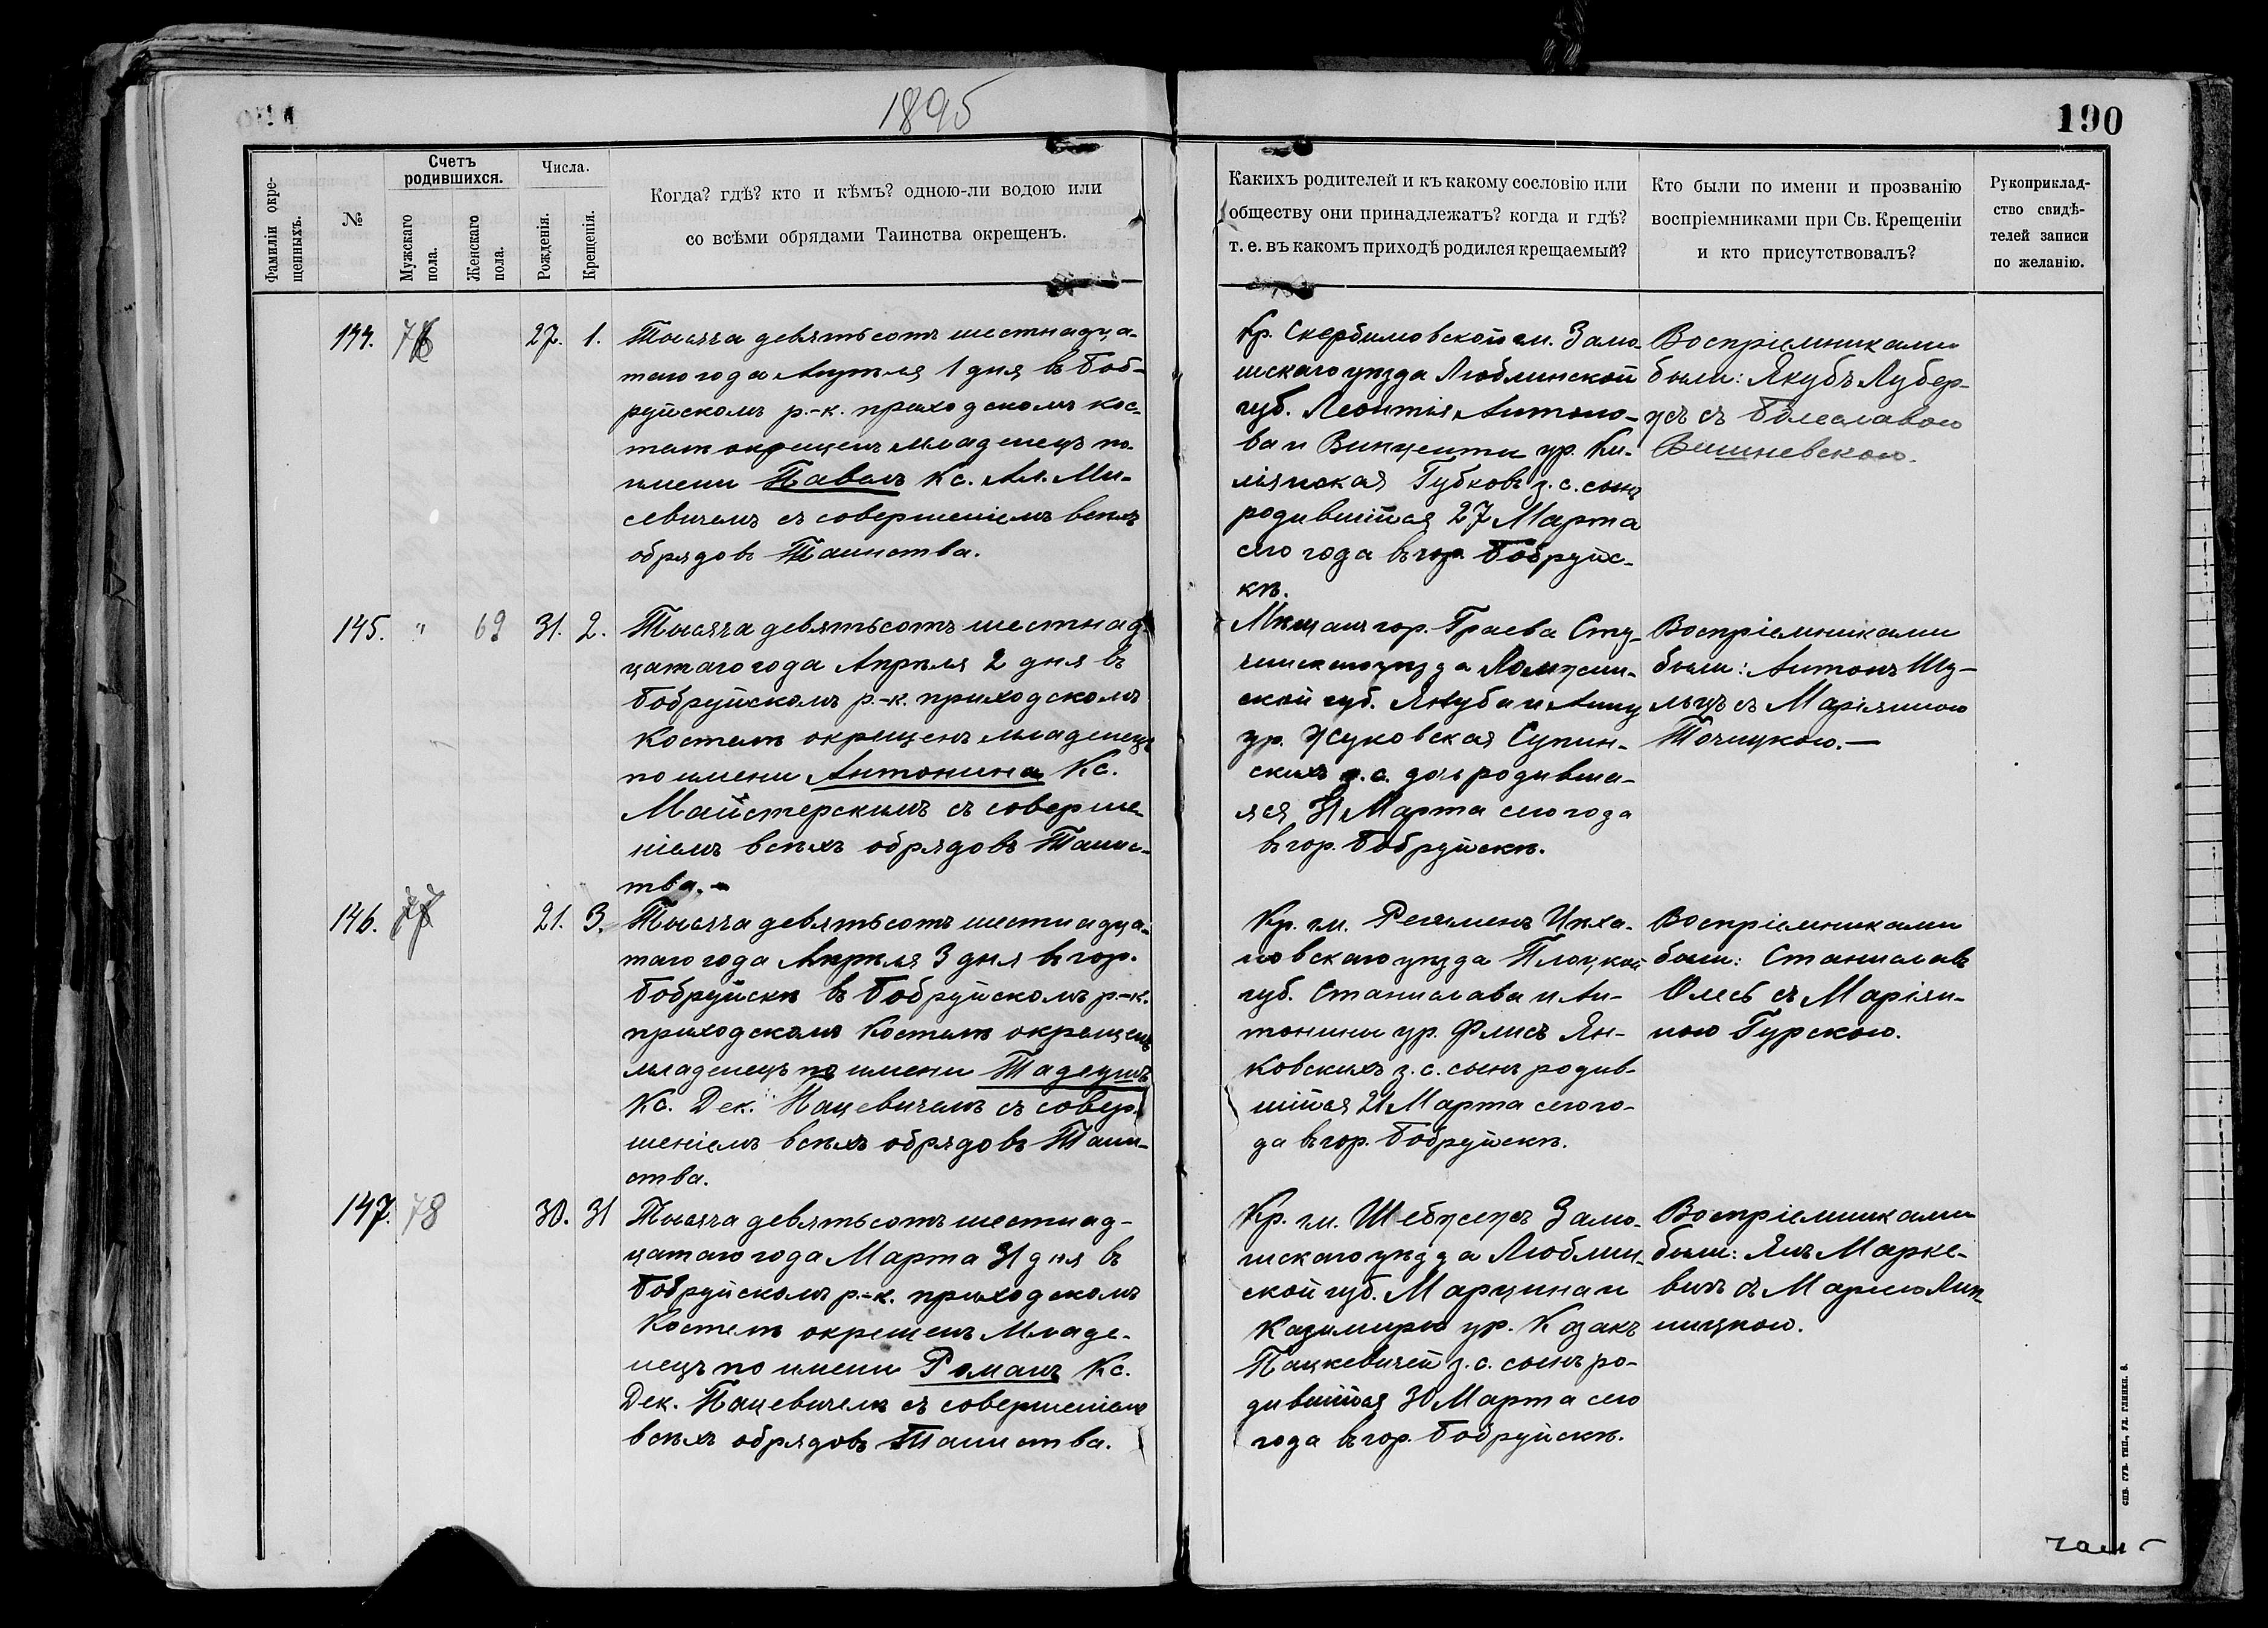 1895
190
Фамиліи окре-
щенныхъ.
№
Счетъ
родившихся.
Мужскаго
пола.
Женскаго
пола.
Числа.
Рожденія.
Крещенія.
Когда? гдѣ? кто и кѣмъ? одною-ли водою или
со всѣми обрядами Таинства окрещенъ.
Какихъ родителей и къ какому сословію или
обществу они принадлежатъ? когда и гдѣ?
т. е. въ какомъ приходѣ родился крещаемый?
Кто были по имени и прозванію
воспріемниками при Св. Крещеніи
и кто присутствовалъ?
Рукоприклад-
ство свидѣ-
телей записи
по желанію.
144.
27. 1.
Тысяча девятьсотъ шестнадца-
таго года Апрѣля 1 дня въ Боб-
руйскомъ р.-к. приходскомъ кос-
телѣ окрещенъ младенецъ по
имени Павелъ Кс. Ал. Ми-
севичемъ съ совершеніемъ всѣхъ
обрядовъ Таинства.
Кр. Скербишовской гм. Замо-
шскаго уѣзда Люблинской
губ. Леонтія Антоно-
ва и Винценты ур. Ки-
ліянская Губковъ з. с. сынъ
родившійся 27 Марта
сего года въ гор. Бобруйс-
кѣ.
Воспріемниками
были: Якубъ Лубер-
съ Болеславою
Вишневскою.
145. " 69 31. 2.
Тысяча девятьсотъ шестнад-
цатаго года Апрѣля 2 дня въ
Бобруйскомъ р.-к. приходскомъ
Костелѣ окрещенъ младенецъ
по имени Антонина Кс.
Майстерскимъ съ соверше-
ніемъ всѣхъ обрядовъ Таинс-
тва.-
Мѣщанъ гор. Граева Сту-
чинскаго уѣзда Ломжин-
ской губ. Якуба и Анны
ур. Жуковская Супин-
скихъ з. с. дочь родивша-
яся 31 Марта сего года
въ гор. Бобруйскѣ.
Воспріемниками
были: Антонъ Шу-
льцъ съ Маріянною
Точицкою.—
146. 77 21. 3.
Тысяча девятьсотъ шестнадца-
таго года Апрѣля 3 дня въ гор.
Бобруйскѣ въ Бобруйскомъ р.-к.
приходскомъ Костелѣ окрещенъ
младенецъ по имени Тадеушъ
Кс. Дек. Пацевичемъ съ совер-
шеніемъ всѣхъ обрядовъ Таин-
ства.
Кр. гм. Регименъ Цѣха-
новскаго уѣзда Плоцкой
губ. Станислава и Ан-
тонины ур. Флисъ Ян-
ковскихъ з. с. сынъ родив-
шійся 21 Марта сего го-
да въ гор. Бобруйскѣ.
Воспріемниками
были: Станиславъ
Олесь съ Маріян-
ною Гурскою.
147. 78 30. 31
Тысяча девятьсотъ шестнад-
цатаго года Марта 31 дня въ
Бобруйскомъ р.-к. приходскомъ
Костелѣ окрещенъ Младе-
нецъ по имени Романъ Кс.
Дек. Пацевичемъ съ совершеніемъ
всѣхъ обрядовъ Таинства.
Кр. гм. Шебжешъ Замо-
шскаго уѣзда Люблин-
ской губ. Марцина и
Казимиры ур. Козакъ
Пацкевичей з. с. сынъ ро-
дившійся 30 Марта сего
года въ гор. Бобруйскѣ.
Воспріемниками
были: Янъ Марке-
вичъ съ Маріею Лип-
ницкою.
СПБ. ГУБ. ТИП., УЛ. ГЛИНКИ, 8.